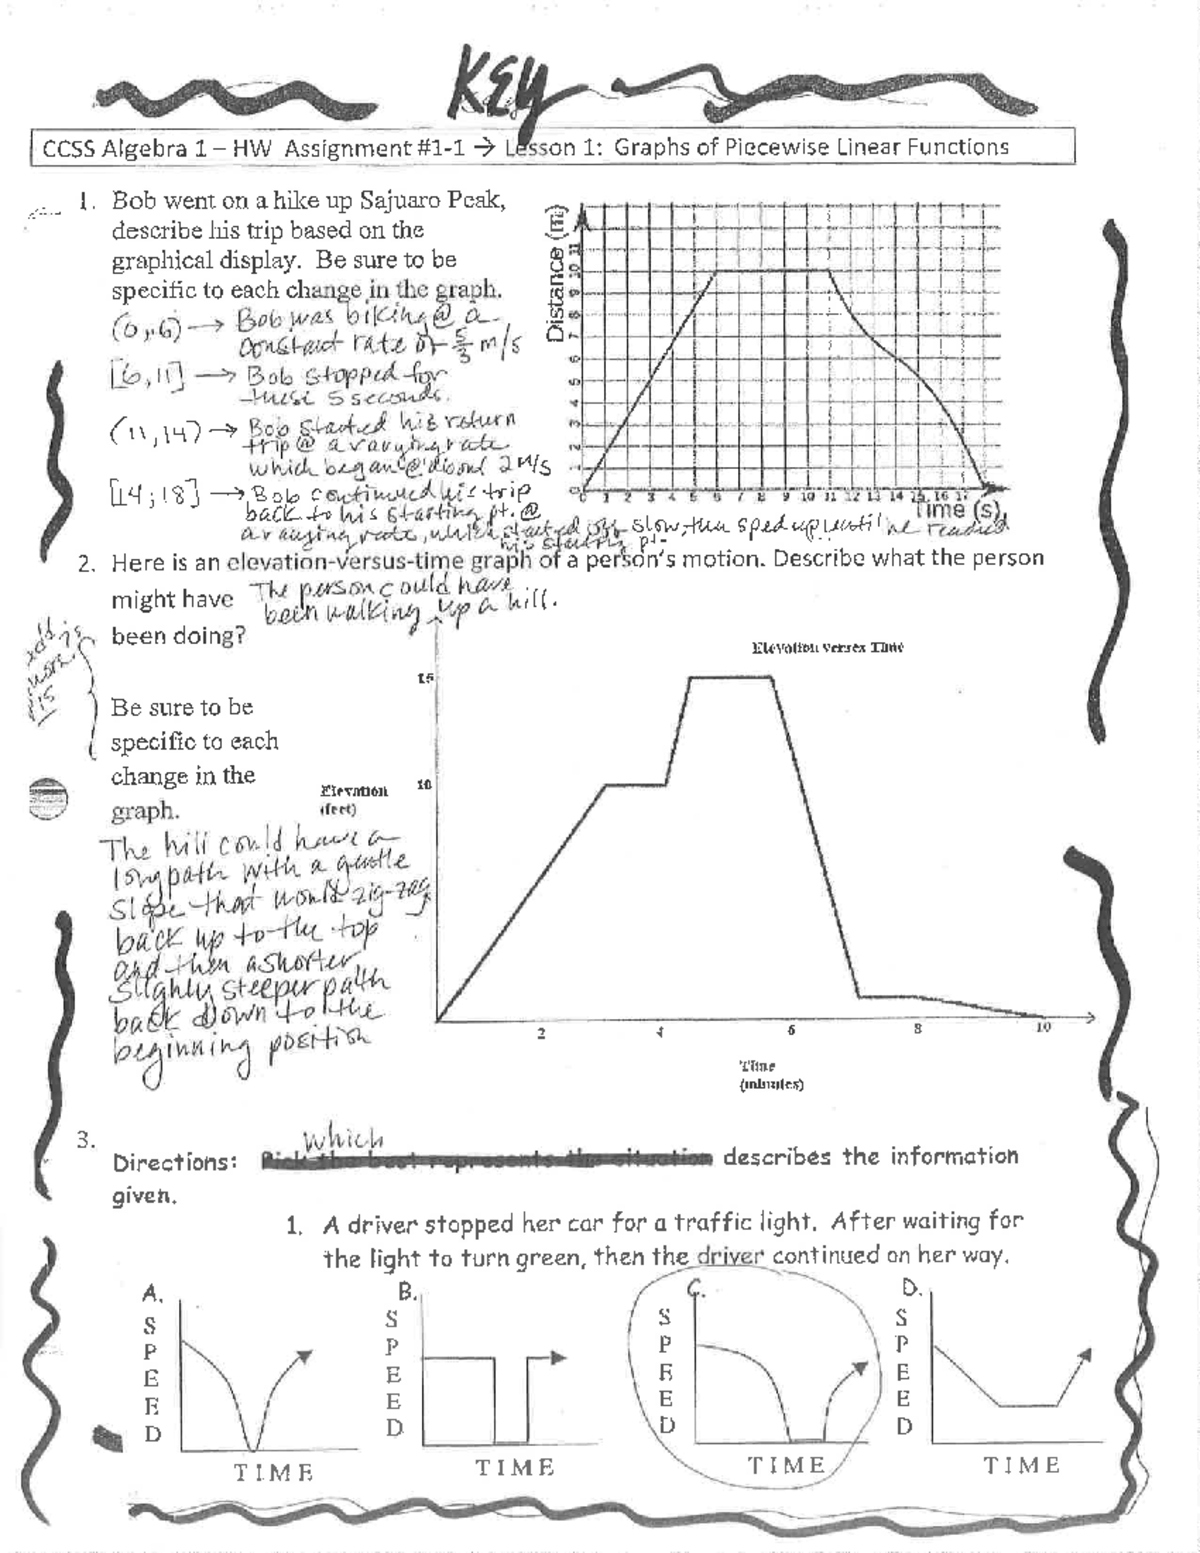 KEY
CCSS Algebra 1 – HW Assignment #1-1 → Lesson 1: Graphs of Piecewise Linear Functions
1. Bob went on a hike up Sajuaro Peak,
describe his trip based on the
graphical display. Be sure to be
specific to each change in the graph.
(0,6) → Bob was biking @ a
constant rate of 5/3 m/s
[6,11] → Bob stopped for
these 5 seconds.
(11,14) → Bob started his return
trip @ a varying rate
which began @ about 2 m/s
[14,18] → Bob continued his trip
back to his starting pt. @
a varying rate, which started off slow, then sped up until he reached
his starting pt.
Distance (m)
0 1 2 3 4 5 6 7 8 9 10 11
0 1 2 3 4 5 6 7 8 9 10 11 12 13 14 15 16 17
Time (s)
2. Here is an elevation-versus-time graph of a person's motion. Describe what the person
might have The person could have
been walking up a hill.
been doing?
Be sure to be
specific to each
change in the
graph.
The hill could have a
long path with a gentle
slope that would zig-zag
back up to the top
and then a shorter
slighly steeper path
back down to the
beginning position
Elevation versex Time
15
10
Elevation
(feet)
2 4 6 8 10
Time
(minutes)
3.
which
Directions: describes the information
given.
1. A driver stopped her car for a traffic light. After waiting for
the light to turn green, then the driver continued on her way.
A. B. C. D.
SPEED SPEED SPEED SPEED
TIME TIME TIME TIME